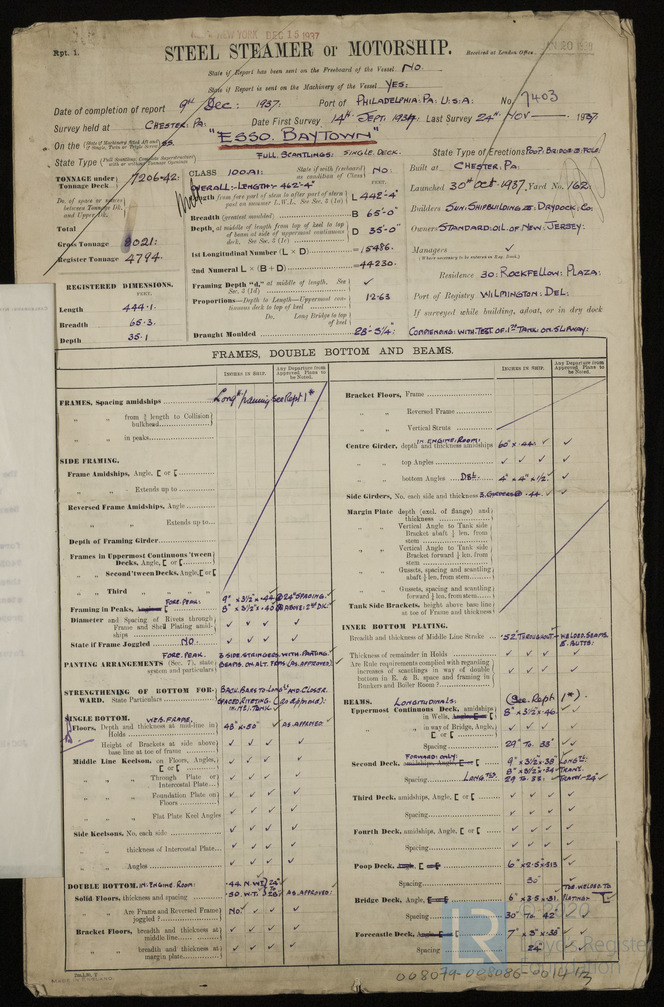 NEW YORK DEC 15 1937
Rpt. 1.
STEEL STEAMER or MOTORSHIP.
Received at London Office
State if Report has been sent on the Freeboard of the Vessel NO.
State if Report is sent on the Machinery of the Vessel YES.
Date of completion of report 9th Dec: 1937. Port of PHILADELPHIA: PA: U:S:A: No. 7403
Survey held at CHESTER: PA: Date First Survey 14th SEPT: 1937. Last Survey 24th NOV 1937
On the SS. "ESSO. BAYTOWN"
State Type FULL SCANTLINGS: SINGLE DECK. State Type of Erections POOP: BRIDGE & FCLE:
TONNAGE under Tonnage Deck 7206.42:
Do. of space or spaces between Tonnage Dk. and Upper Dk.
Total
Gross Tonnage 8021:
Register Tonnage 4794.
REGISTERED DIMENSIONS.
FEET.
Length 444.1
Breadth 65.3
Depth 35.1
CLASS 100.A1: State if with freeboard as condition of Class NO.
OVERALL:- LENGTH:- 462'-4"
FEET.
Length from fore part of stem to after part of stern post on summer L.W.L. See Sec. 3 (1a) L 442-4"
Breadth (greatest moulded) B 65-0"
Depth, at middle of length from top of keel to top of beam at side of uppermost continuous deck. See Sec. 3 (1c) D 35-0"
1st Longitudinal Number (L × D) = 15486.
2nd Numeral L × (B + D) = 44230.
Framing Depth "d," at middle of length. See Sec. 3 (1d) ✓
Proportions—Depth to Length—Uppermost continuous deck to top of keel 12.63
Do. Long Bridge to top of keel
Draught Moulded 28-3/4":
Built at CHESTER: PA:
Launched 30th Oct: 1937. Yard No. 162:
Builders SUN: SHIPBUILDING & DRYDOCK: Co:
Owners STANDARD: OIL OF NEW: JERSEY:
Managers ✓
(Where necessary to be entered in Reg. Book.)
Residence 30: ROCKFELLOW: PLAZA:
Port of Registry WILMINGTON: DEL:
If surveyed while building, afloat, or in dry dock
COMMENCING: WITH TEST OF 1st TANK ON SLIPWAY:
FRAMES, DOUBLE BOTTOM AND BEAMS.
INCHES IN SHIP.
Any Departure from Approved Plans to be Noted.
FRAMES, Spacing amidships Longl framing See Rept 1*
" " from ⅕ length to Collision bulkhead
" " in peaks
SIDE FRAMING.
Frame Amidships, Angle, [ or [
" " Extends up to
Reversed Frame Amidships, Angle
" " Extends up to
Depth of Framing Girder
Frames in Uppermost Continuous 'tween Decks, Angle, [ or [
" " Second 'tween Decks, Angle, [ or [
" " Third " "
Framing in Peaks, FORE. PEAK: 9" × 3½" × .44 @ 24" SPACING.
8" × 3½" × .40 @ ABOVE: 2nd DK:
Diameter and Spacing of Rivets through Frame and Shell Plating amidships ✓ ✓ ✓ ✓
State if Frame Joggled NO. ✓ ✓ ✓ ✓
FORE. PEAK.
PANTING ARRANGEMENTS (Sec. 7), state system and particulars 3 SIDE STRINGERS. WITH. PANTING. BEAMS. ON. ALT. FRMS (AS. APPROVED)
STRENGTHENING OF BOTTOM FORWARD. State Particulars BACK. BARS TO LONGls AND CLOSER SPACED RIVETING. (AS APPROVED): IN. No 1: TANK
SINGLE BOTTOM. WEB. FRAME.
Floors, Depth and thickness at mid-line in Holds 48" × .50" ✓ AS. APPROVED
Height of Brackets at side above base line at toe of frame ✓ ✓ ✓ ✓
Middle Line Keelson, on Floors, Angles, [ or [ ✓ ✓ ✓ ✓
" " Through Plate or Intercostal Plate ✓ ✓ ✓ ✓
" " Foundation Plate on Floors ✓ ✓ ✓ ✓
" " Flat Plate Keel Angles ✓ ✓ ✓ ✓
Side Keelsons, No. each side ✓ ✓ ✓ ✓
" " thickness of Intercostal Plate ✓ ✓ ✓ ✓
" " Angles ✓ ✓ ✓ ✓
DOUBLE BOTTOM. IN: ENGINE: ROOM:
Solid Floors, thickness and spacing .44 N.W.T
.50 W.T AS. APPROVED:
" " Are Frame and Reversed Frame joggled? NO. ✓ ✓ ✓
Bracket Floors, breadth and thickness at middle line ✓ ✓ ✓ ✓
" " breadth and thickness at margin plate ✓ ✓ ✓ ✓
INCHES IN SHIP.
Any Departure from Approved Plans to be Noted.
Bracket Floors, Frame
" " Reversed Frame
" " Vertical Struts
Centre Girder, depth and thickness amidships IN. ENGINE. ROOM: 60" × .44: ✓ ✓
" " top Angles ✓ ✓ ✓ ✓
" " bottom Angles DBL. 4" × 4" × 1/2" ✓ ✓
Side Girders, No. each side and thickness 3. GIRDERS @ .44. ✓ ✓
Margin Plate depth (excl. of flange) and thickness
" " Vertical Angle to Tank side Bracket abaft ⅕ len. from stem
" " Vertical Angle to Tank side Bracket forward ⅕ len. from stem
" " Gussets, spacing and scantling abaft ⅕ len. from stem
" " Gussets, spacing and scantling forward ⅕ len. from stem
Tank Side Brackets, height above base line at toe of Frame and thickness
INNER BOTTOM PLATING.
Breadth and thickness of Middle Line Strake .52. THROUGHOUT. WELDED. SEAMS. & BUTTS:
Thickness of remainder in Holds ✓ ✓ ✓ ✓
Are Rule requirements complied with regarding increases of scantlings in way of double bottom in E. & B. space and framing in Bunkers and Boiler Room? ✓ ✓ ✓ ✓
BEAMS. LONGITUDINALS: (See. Rept 1*).
Uppermost Continuous Deck, amidships in Wells, 8" × 3½ × .46. ✓ ✓
" " in way of Bridge, Angle, [ or [ ✓ ✓ ✓ ✓
Spacing 29" TO. 33" ✓ ✓
FORWARD: ONLY:
Second Deck, 9" × 3½ × .38" LONGls:
8" × 3½ × .34 TRANS.
Spacing 29 TO. 33: TRANS-24" ✓
Third Deck, amidships, Angle, [ or [ ✓ ✓ ✓ ✓
Spacing ✓ ✓ ✓ ✓
Fourth Deck, amidships, Angle, [ or [ ✓ ✓ ✓ ✓
Spacing ✓ ✓ ✓ ✓
Poop Deck, 6" × 2.5 × .313 ✓
Spacing 30" ✓
Bridge Deck, Angle, 6" × 3.5 × .31. TOE. WELDED. TO PLATING:
Spacing 30" TO. 42"
Forecastle Deck, 7" × 3" × .38"
Spacing 24"
© 2020
LR Lloyd's Register
Foundation
008079-008086-0014 1/3